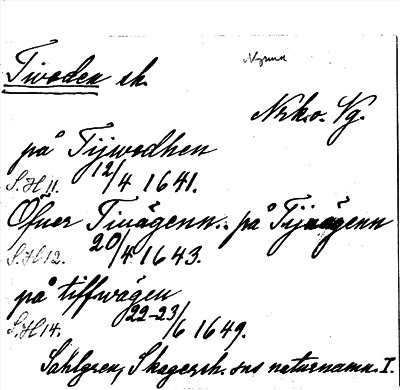 Nysund
Tiveden sk.
Nrk. o. Vg.
på Tijwedhen
S. H 11. 12/4 1641.
Öfuer Tivägenn.. på Tijvägenn
S. H 12. 20/4 1643.
på tiffwägen
S. H 14. 22-23/6 1649.
Sahlgren, Skagersh. sns naturnamn. I.